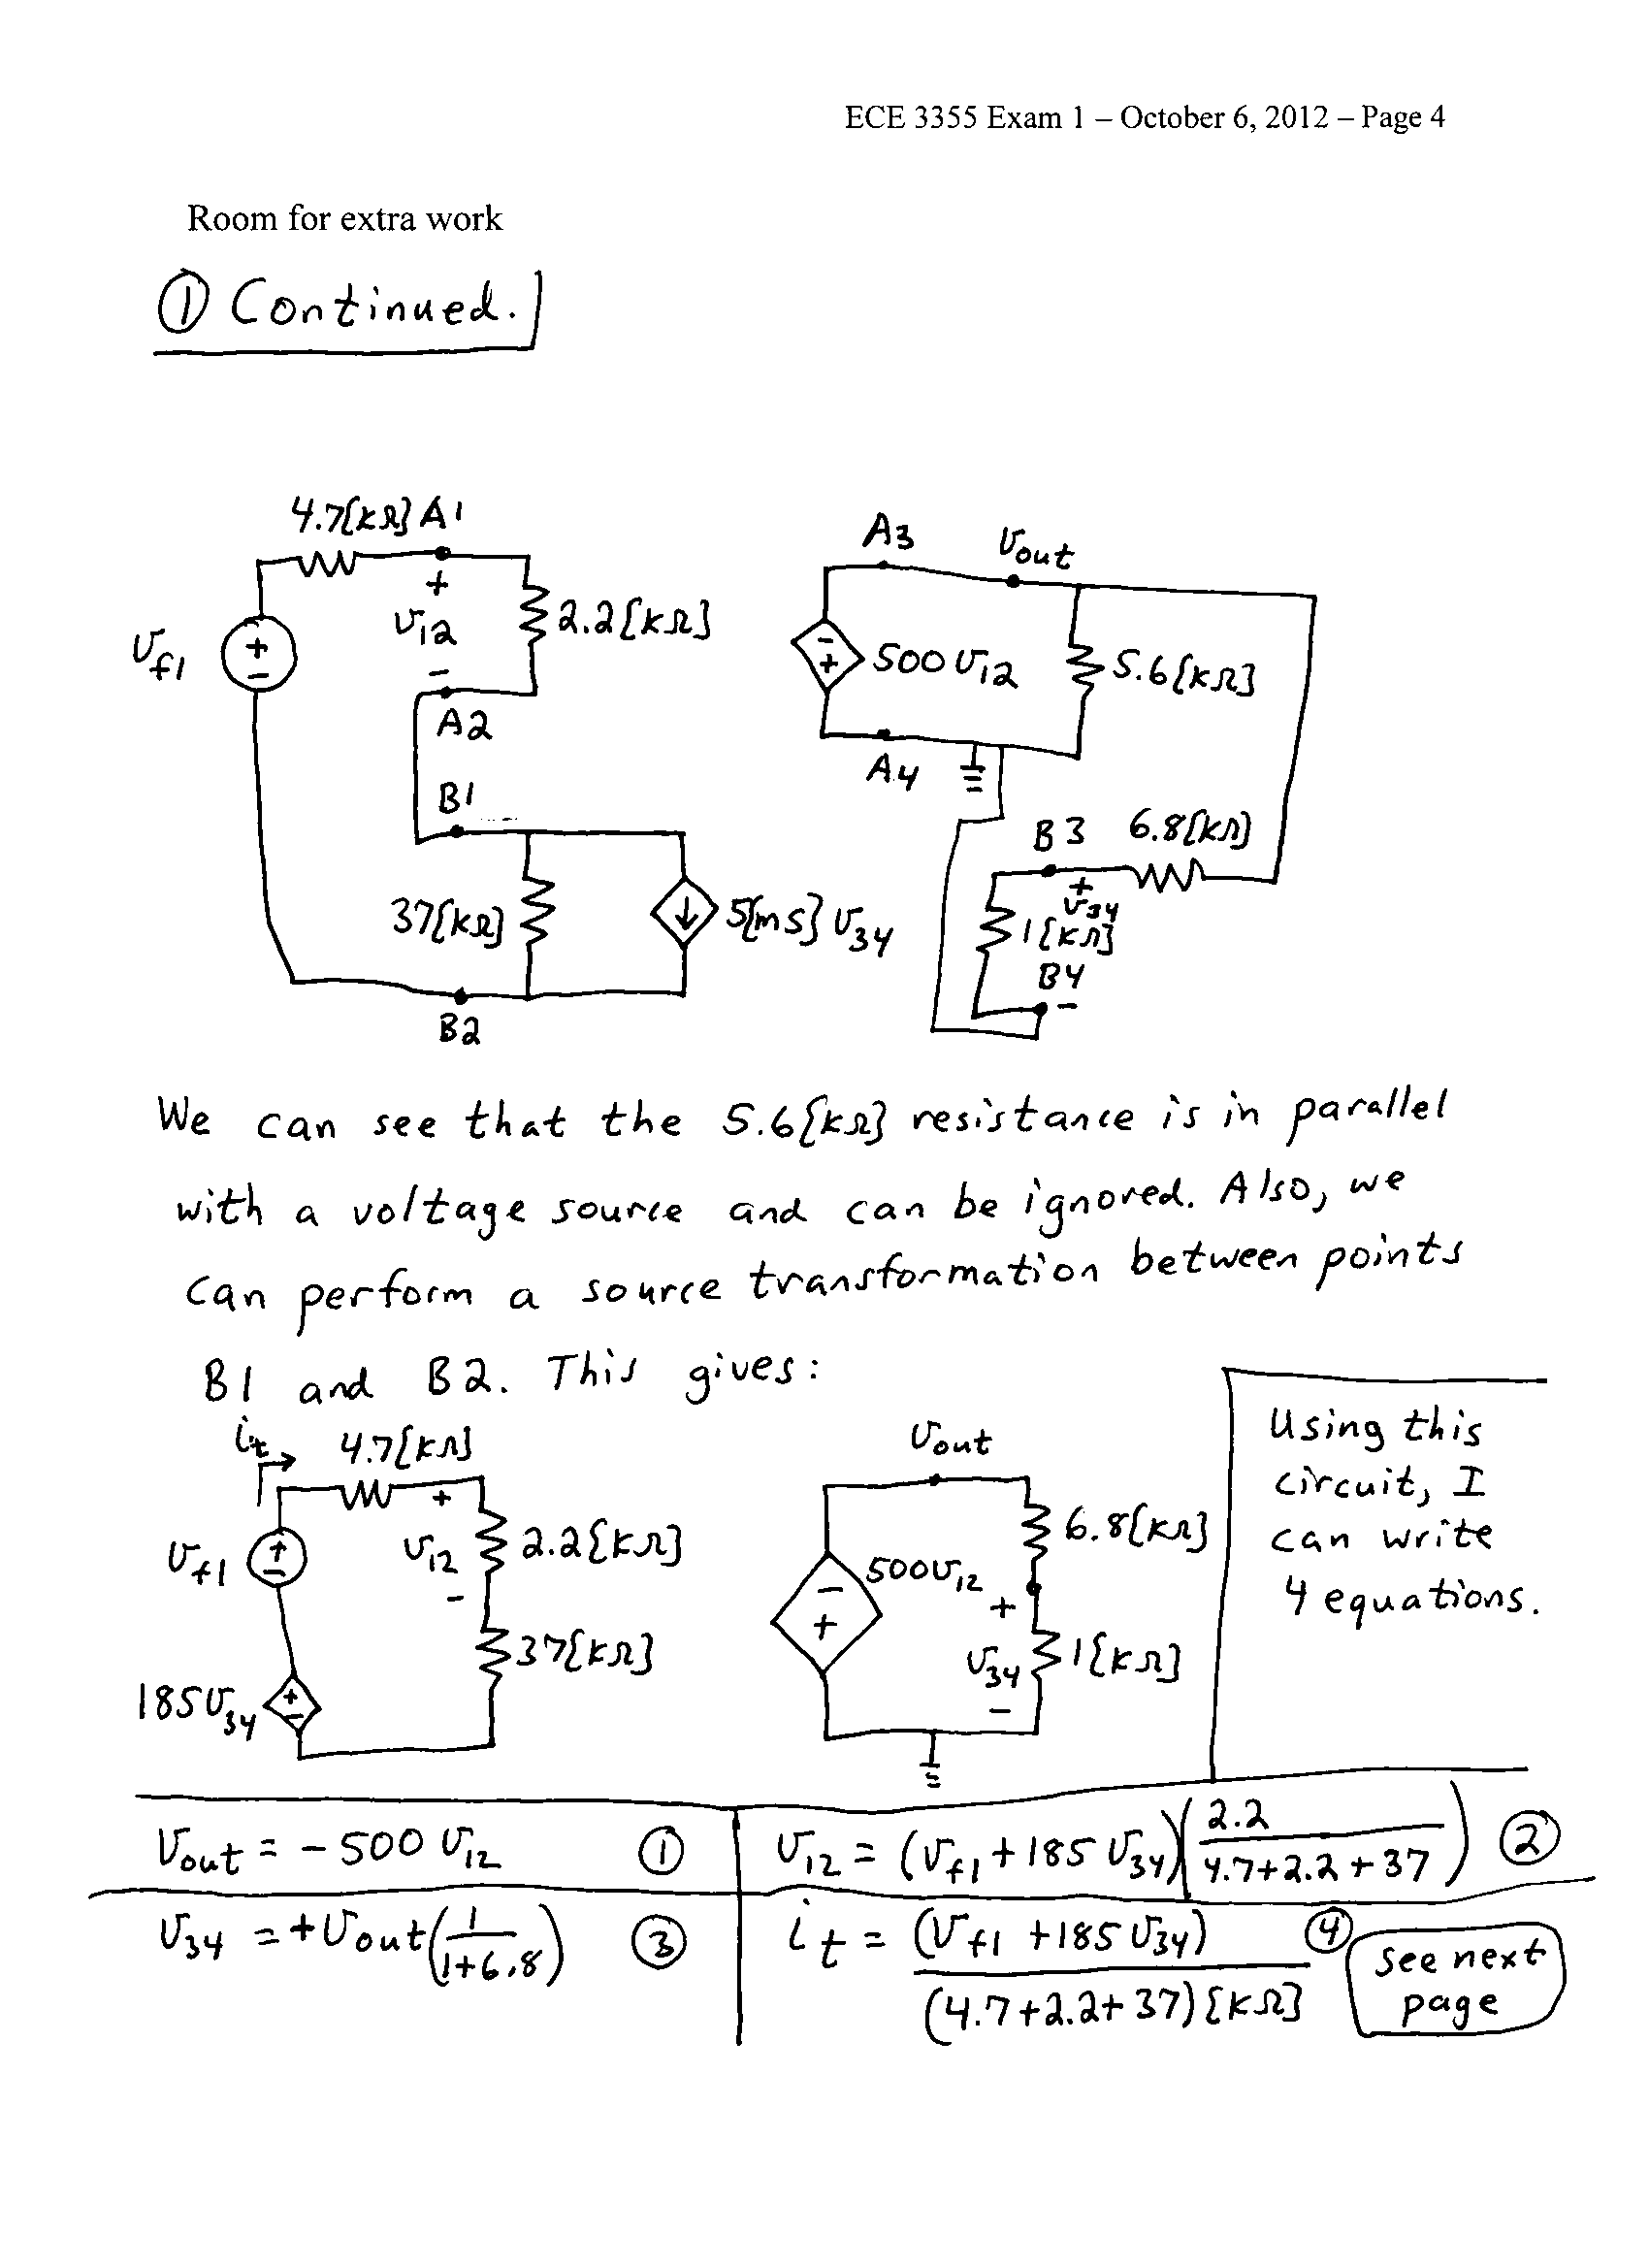 ECE 3355 Exam 1 – October 6, 2012 – Page 4
Room for extra work
① Continued.
4.7[kΩ] A1
+
v12
-
2.2[kΩ]
vf1
+
-
A2
B1
37[kΩ]
5[mS] v34
B2
A3
vout
-
+
500 v12
5.6[kΩ]
A4
B3
6.8[kΩ]
+
v34
1[kΩ]
B4
-
We can see that the 5.6[kΩ] resistance is in parallel
with a voltage source and can be ignored. Also, we
can perform a source transformation between points
B1 and B2. This gives:
it
4.7[kΩ]
vf1
+
-
+
v12
-
2.2[kΩ]
37[kΩ]
185 v34
+
-
vout
6.8[kΩ]
500 v12
-
+
+
v34
-
1[kΩ]
Using this
circuit, I
can write
4 equations.
vout = - 500 v12 ①
v12 = (vf1 + 185 v34)(2.2 / 4.7+2.2+37) ②
v34 = +vout(1 / 1+6.8) ③
it = (vf1 + 185 v34) / (4.7+2.2+37)[kΩ] ④
see next
page